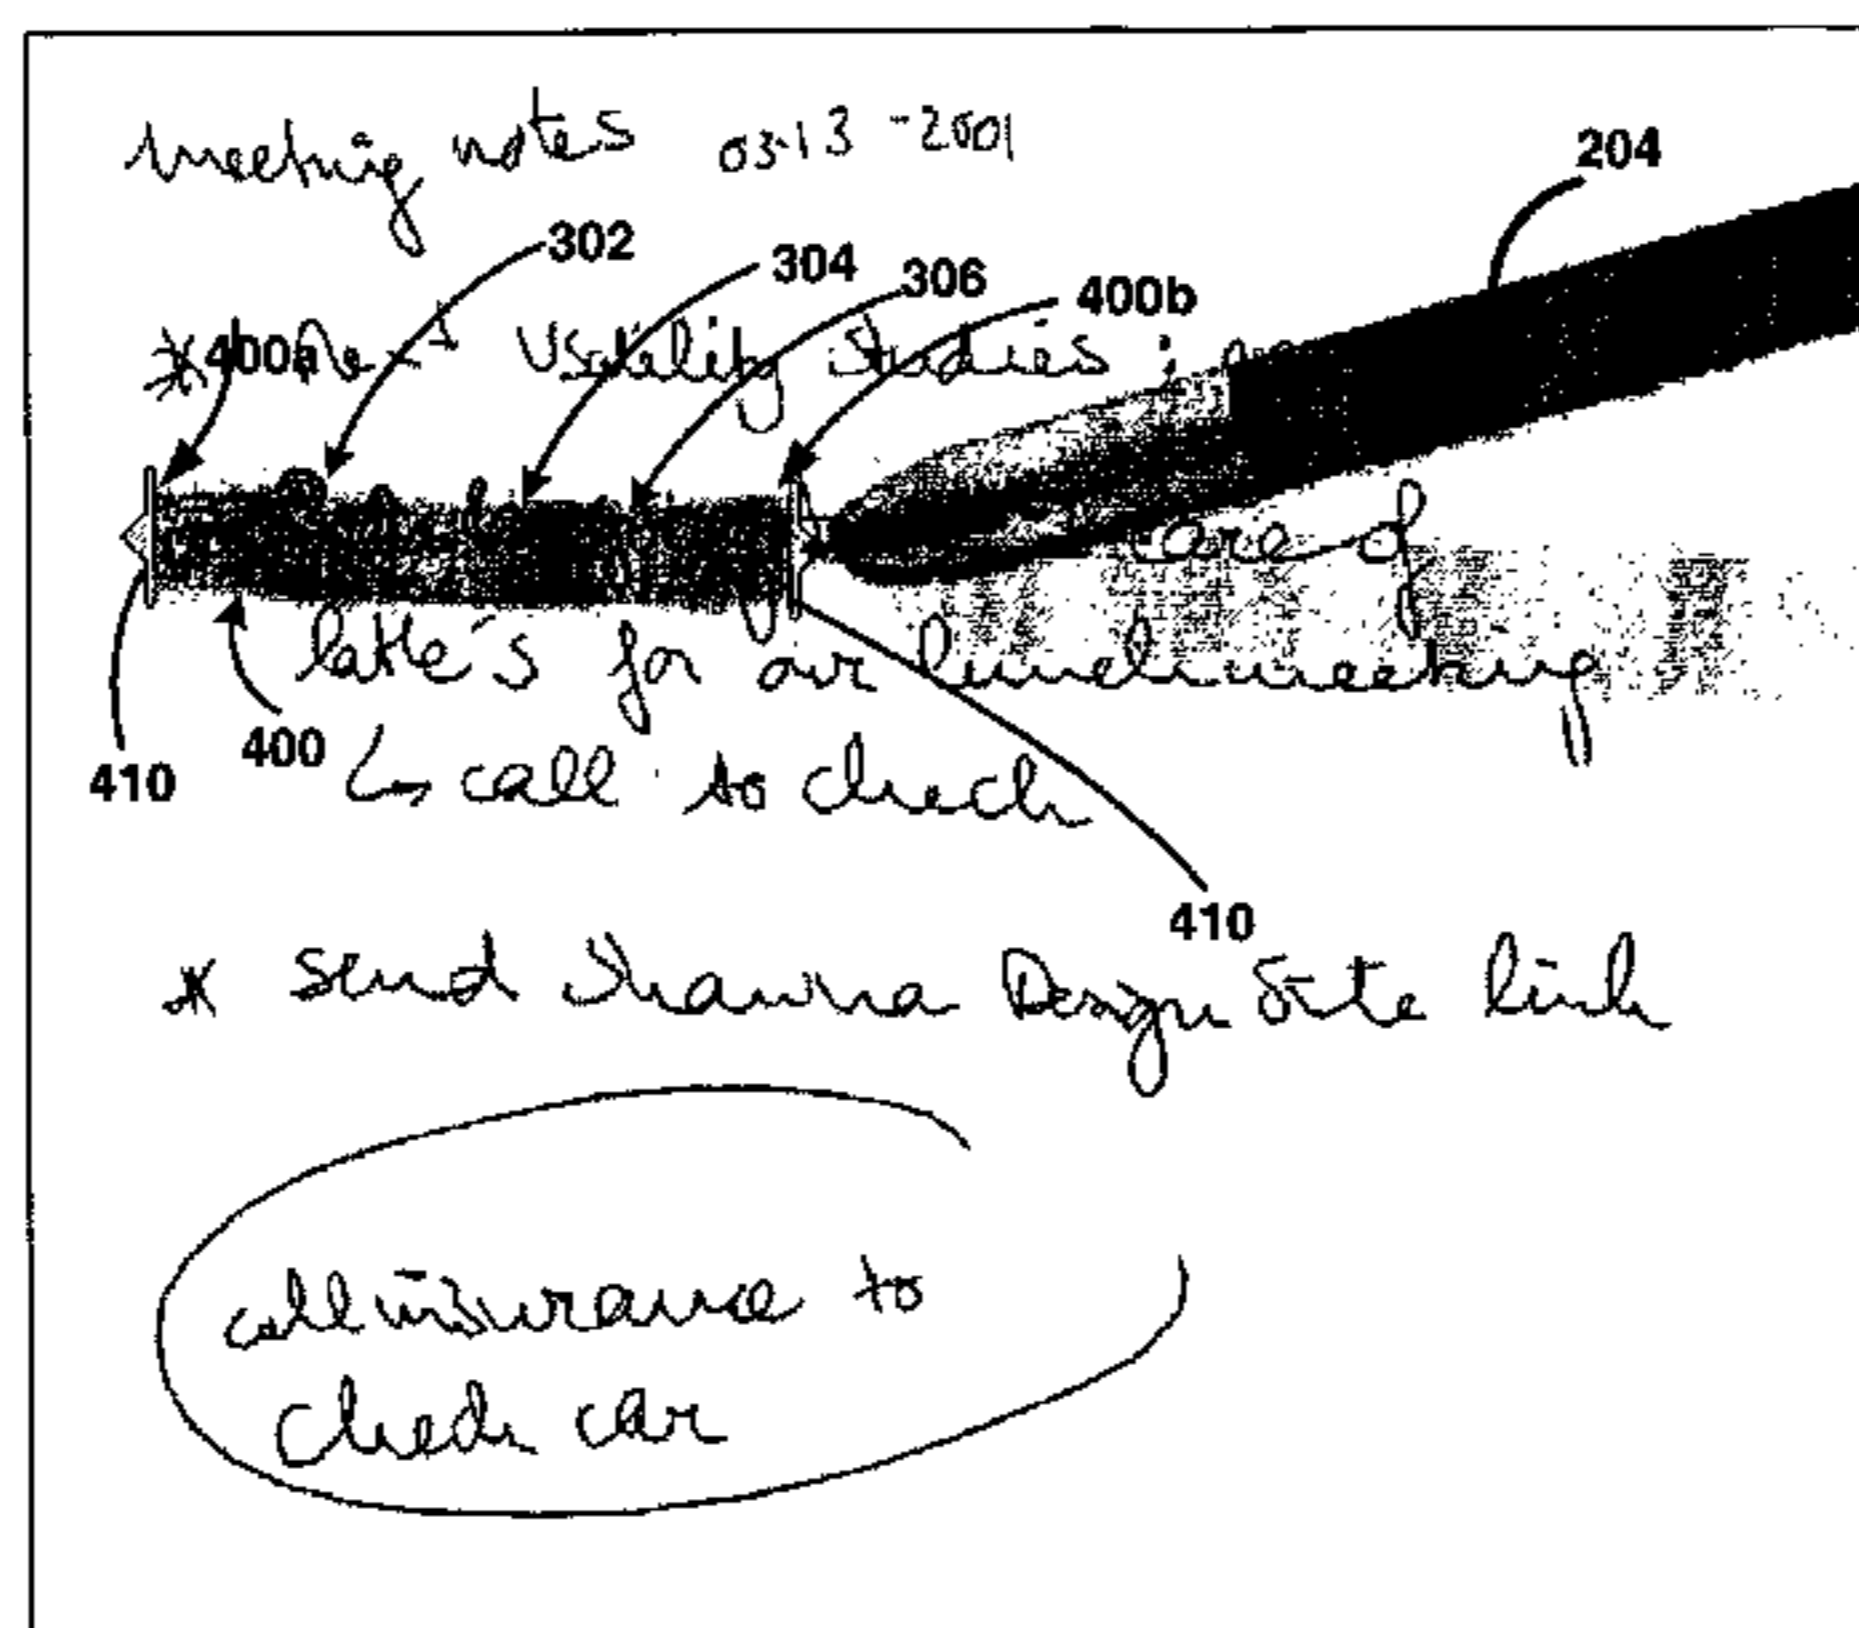 meeting notes 03-13-2001
204
302
304
306
400b
* 400a Next Usability Studies :
care of
latte's for our lunch meeting
400
410
↳ call to check
410
* Send Shawna Design Site link
call insurance to
check car